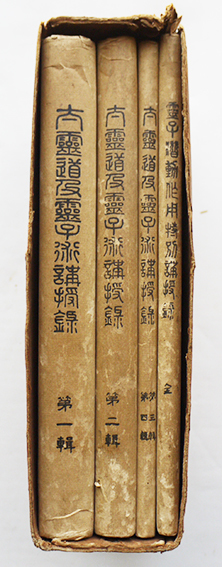 太靈道及靈子術講授錄
第一輯
太靈道及靈子術講授錄
第二輯
太靈道及靈子術講授錄
第三輯
第四輯
靈子潛動作用特別講授錄
全